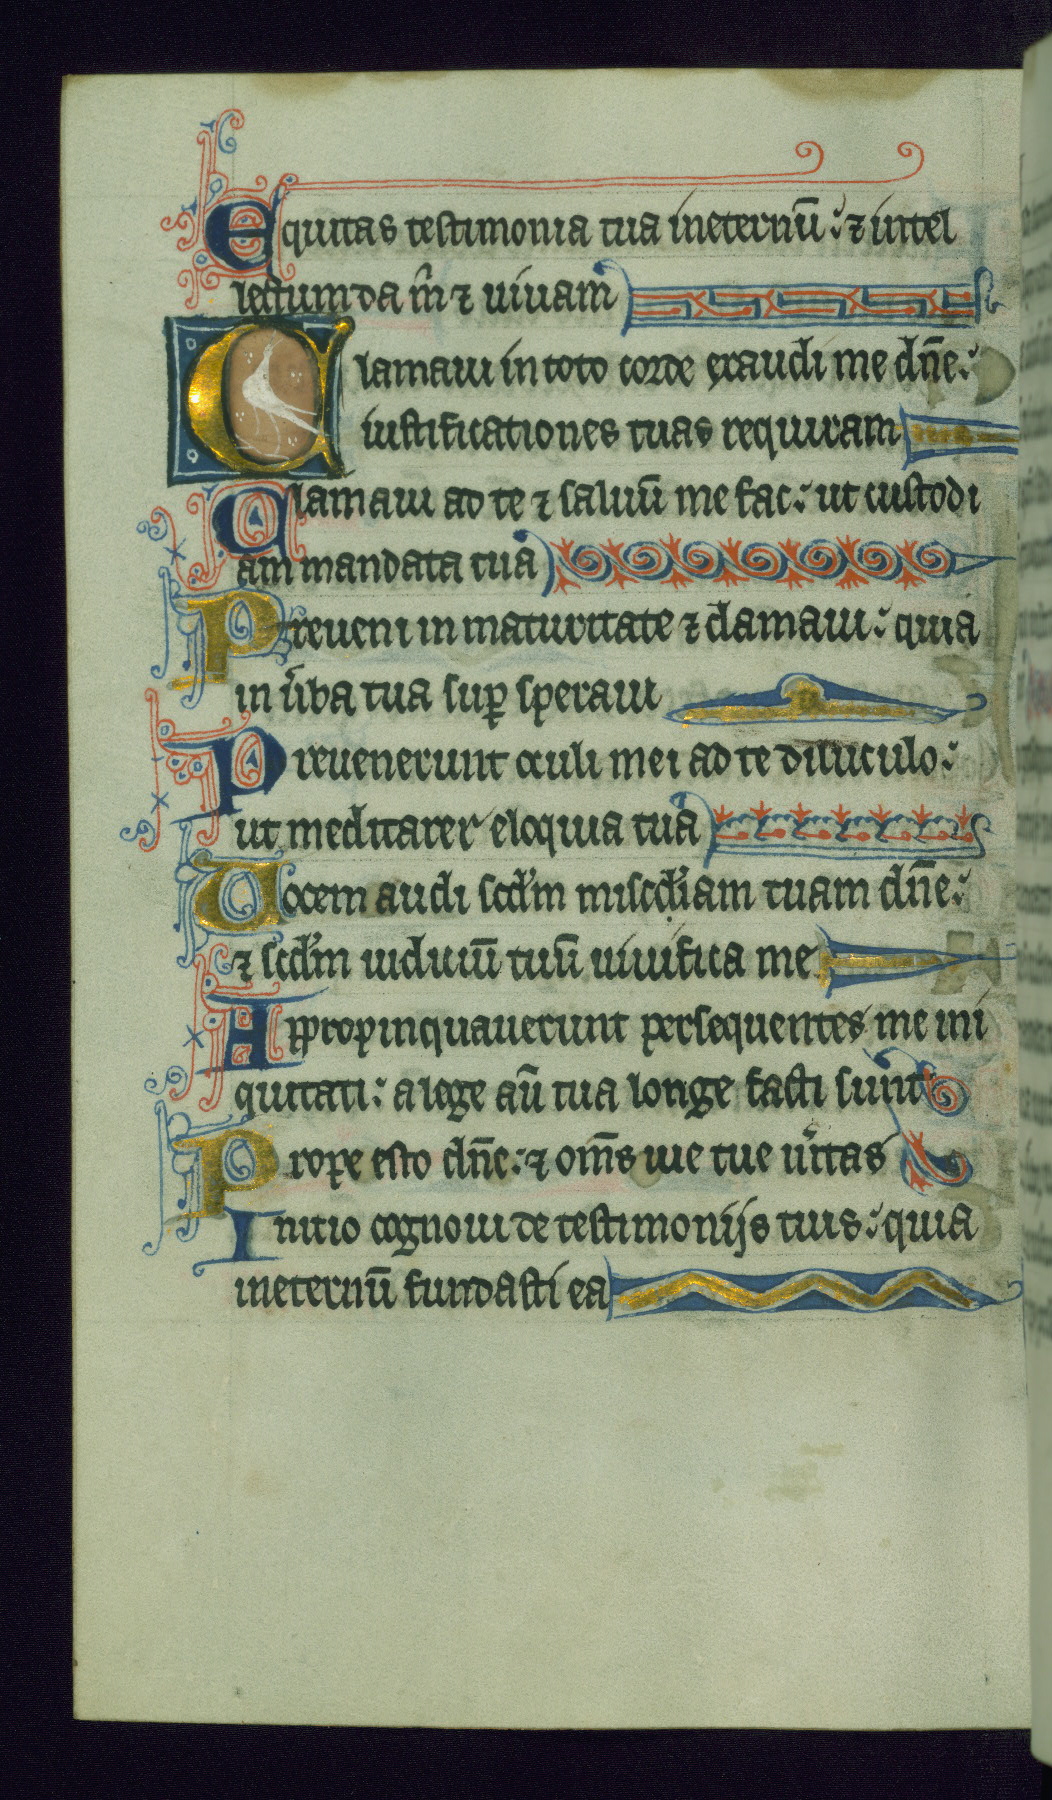 Equitas testimonia tua ineternū: ⁊ intel
lectum da m̄ ⁊ uiuam
Clamaui in toto corde exaudi me dn̄e:
iustificationes tuas requiram
Clamaui ad te ⁊ saluū me fac: ut custodi
am mandata tua
Preueni in maturitate ⁊ clamaui: quia
in ūba tua suꝑ speraui
Preuenerunt oculi mei ad te diluculo:
ut meditarer eloquia tua
Uocem audi scd̄m misc̄diam tuam dn̄e:
⁊ scd̄m iudiciū tuū uiuifica me
Appropinquauerunt persequentes me ini
quitati: a lege aū tua longe facti sunt
Prope esto dn̄e: ⁊ om̄s uie tue ūitas
Initio cognoui de testimonijs tuis: quia
ineternū fundasti ea